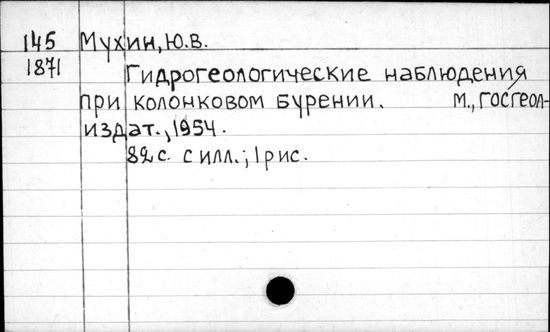 145 Мухин, Ю.В.
1871 Гидрогеологические наблюдения
при колонковом бурении. М., Госгеол-
издат., 1954.
82 с. с илл.; 1 рис.